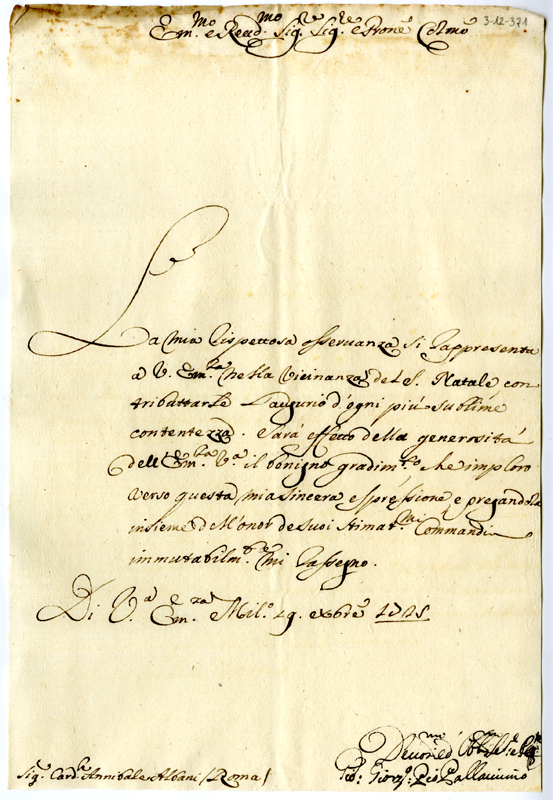 3-12-371
Em.mo e Reud.mo Sig.re Sig.re e Prone Colmo
La mia rispettosa osseruanza si rappresenta
a V. Em.za nella vicinanza del S. Natale con
tributtarle l'augurio d'ogni più sublime
contentezza. Sarà effetto della generosità
dell'Em.za V.a il benigno gradim.to che imploro
verso questa mia sincera espressione e pregandola
insieme dell'onor de suoi stimat.mi Commandi
immutabilm.te mi rassegno.
Di V.a Em.za Mil.o 19. exbre 1725
Deuotis.mo Obl.mo Ser.re
Gio: Giorg.o Pallauicino
Sig.r Card.le Annibale Albani /Roma/